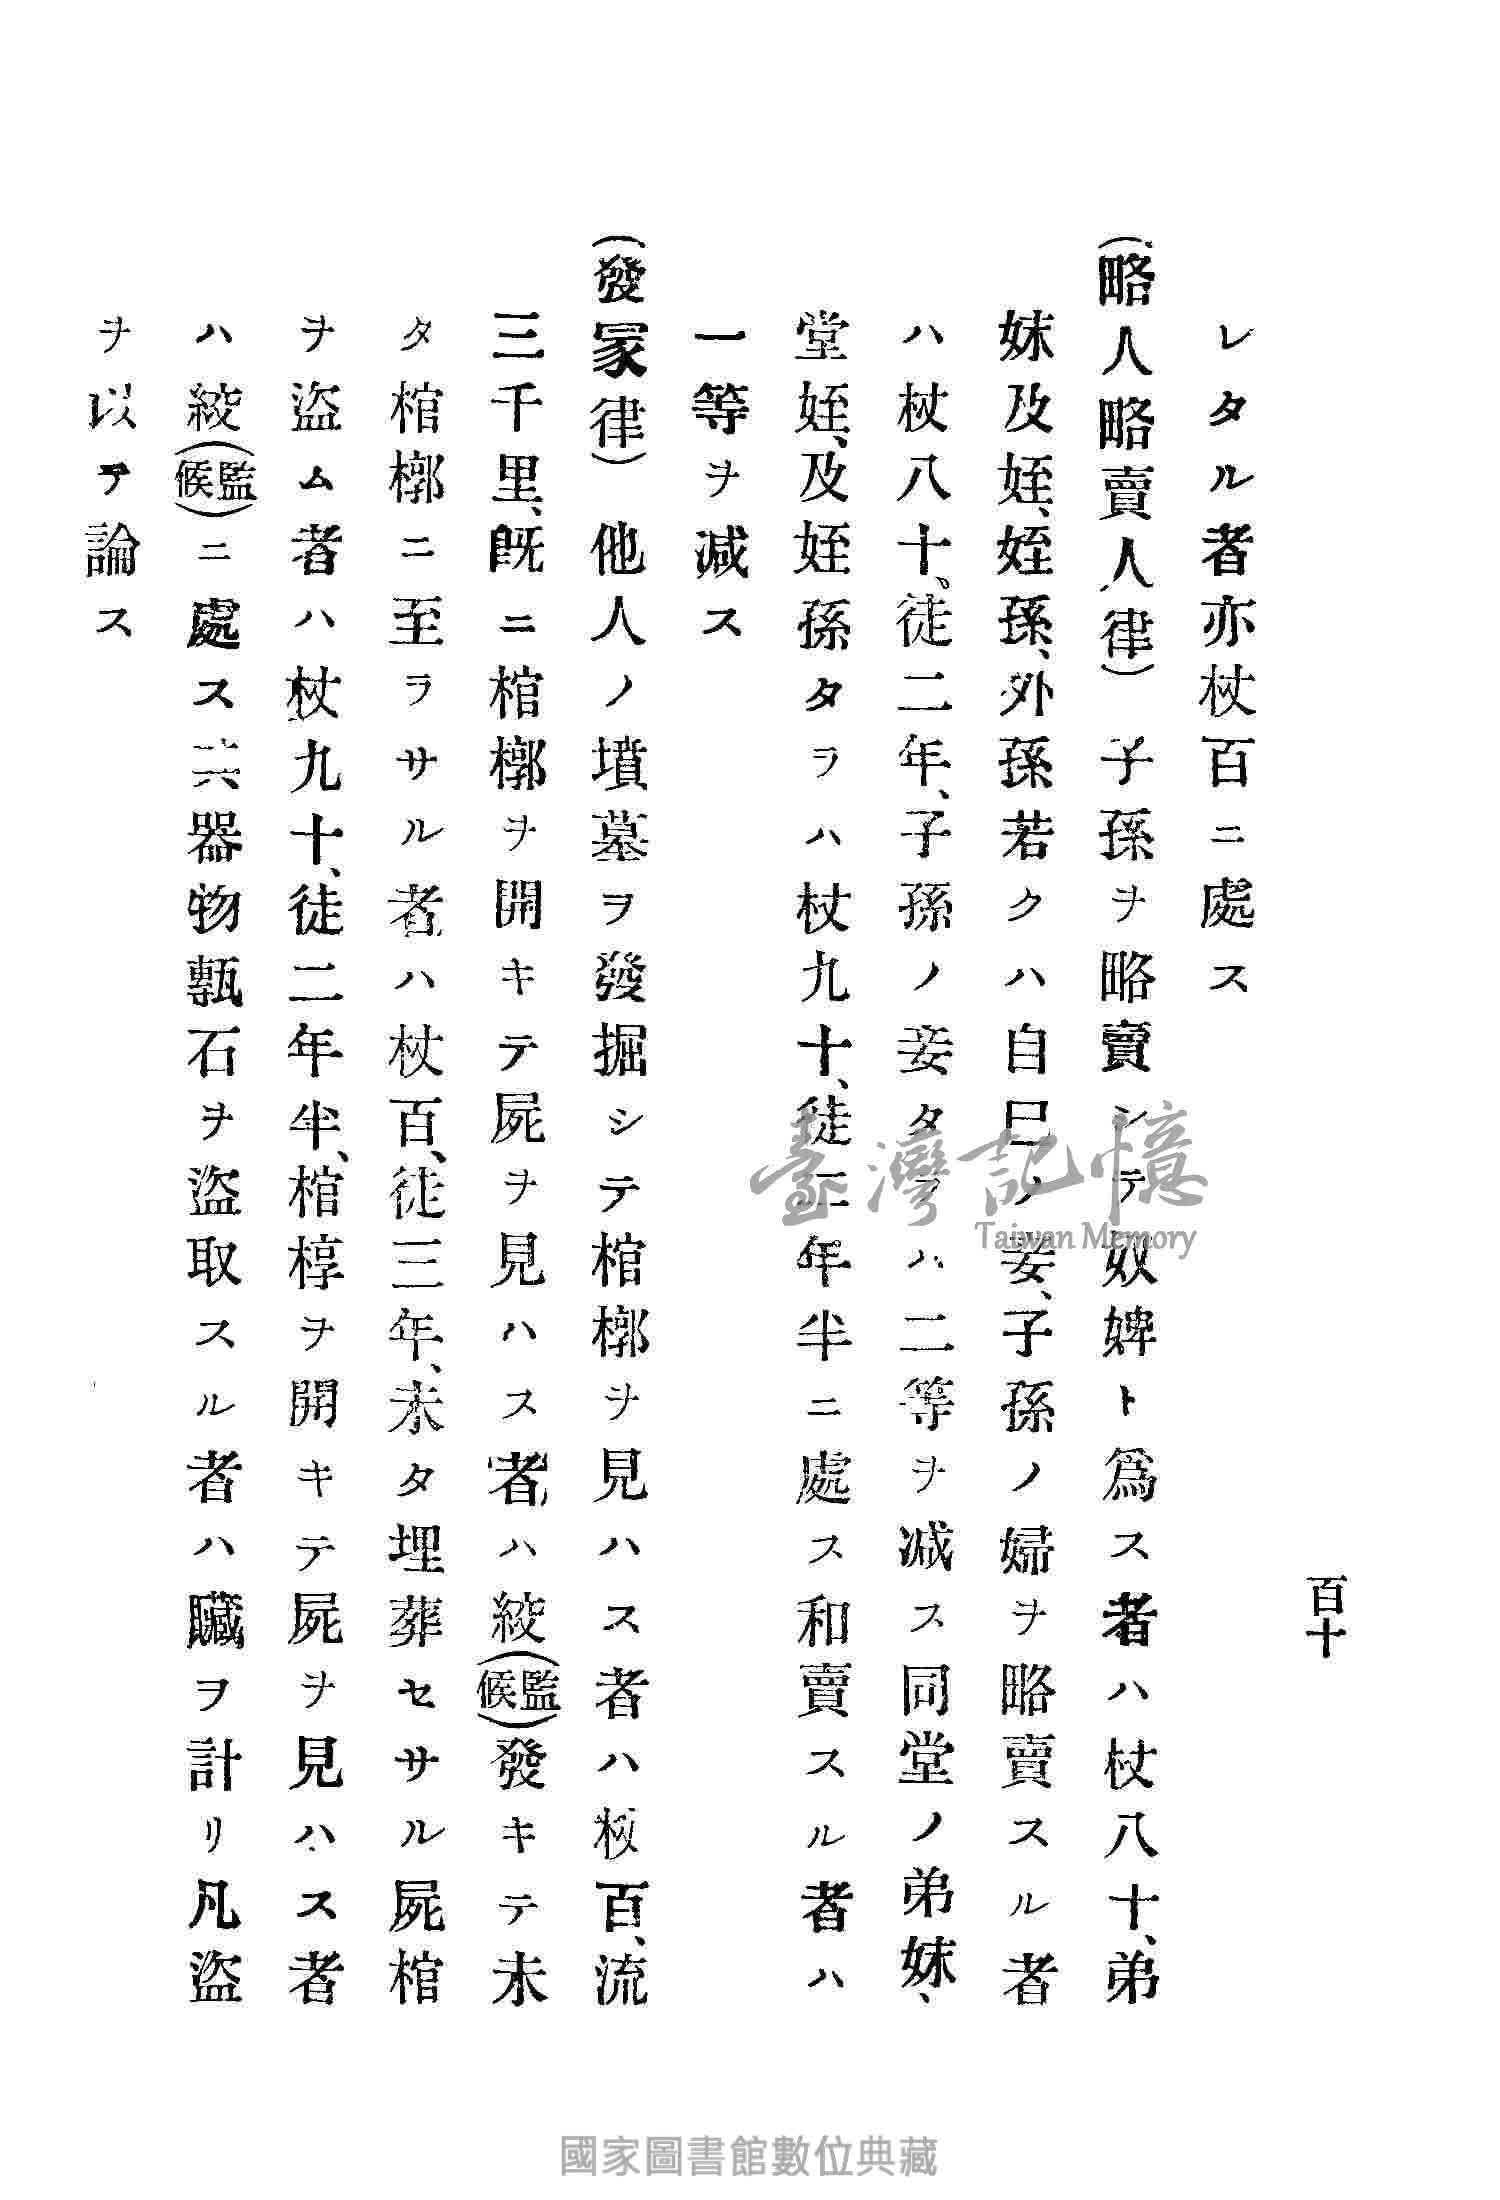 百十
レタル者亦杖百ニ處ス
(略人略賣人律)子孫ヲ略賣シテ奴婢ト爲ス者ハ杖八十、弟
妹及姪、姪孫、外孫若クハ自己ノ妾、子孫ノ婦ヲ略賣スル者
ハ杖八十、徒二年、子孫ノ妾タラハ二等ヲ減ス同堂ノ弟妹、
堂姪、及姪孫タラハ杖九十、徒二年半ニ處ス和賣スル者ハ
一等ヲ減ス
(發冢律)他人ノ墳墓ヲ發掘シテ棺槨ヲ見ハス者ハ杖百、流
三千里、既ニ棺槨ヲ開キテ屍ヲ見ハス者ハ絞(監候)發キテ未
タ棺槨ニ至ラサル者ハ杖百、徒三年、未タ埋葬セサル屍棺
ヲ盜ム者ハ杖九十、徒二年半、棺椁ヲ開キテ屍ヲ見ハス者
ハ絞(監候)ニ處ス其器物甎石ヲ盜取スル者ハ贓ヲ計リ凡盜
ヲ以テ論ス
臺灣記憶
Taiwan Memory
國家圖書館數位典藏